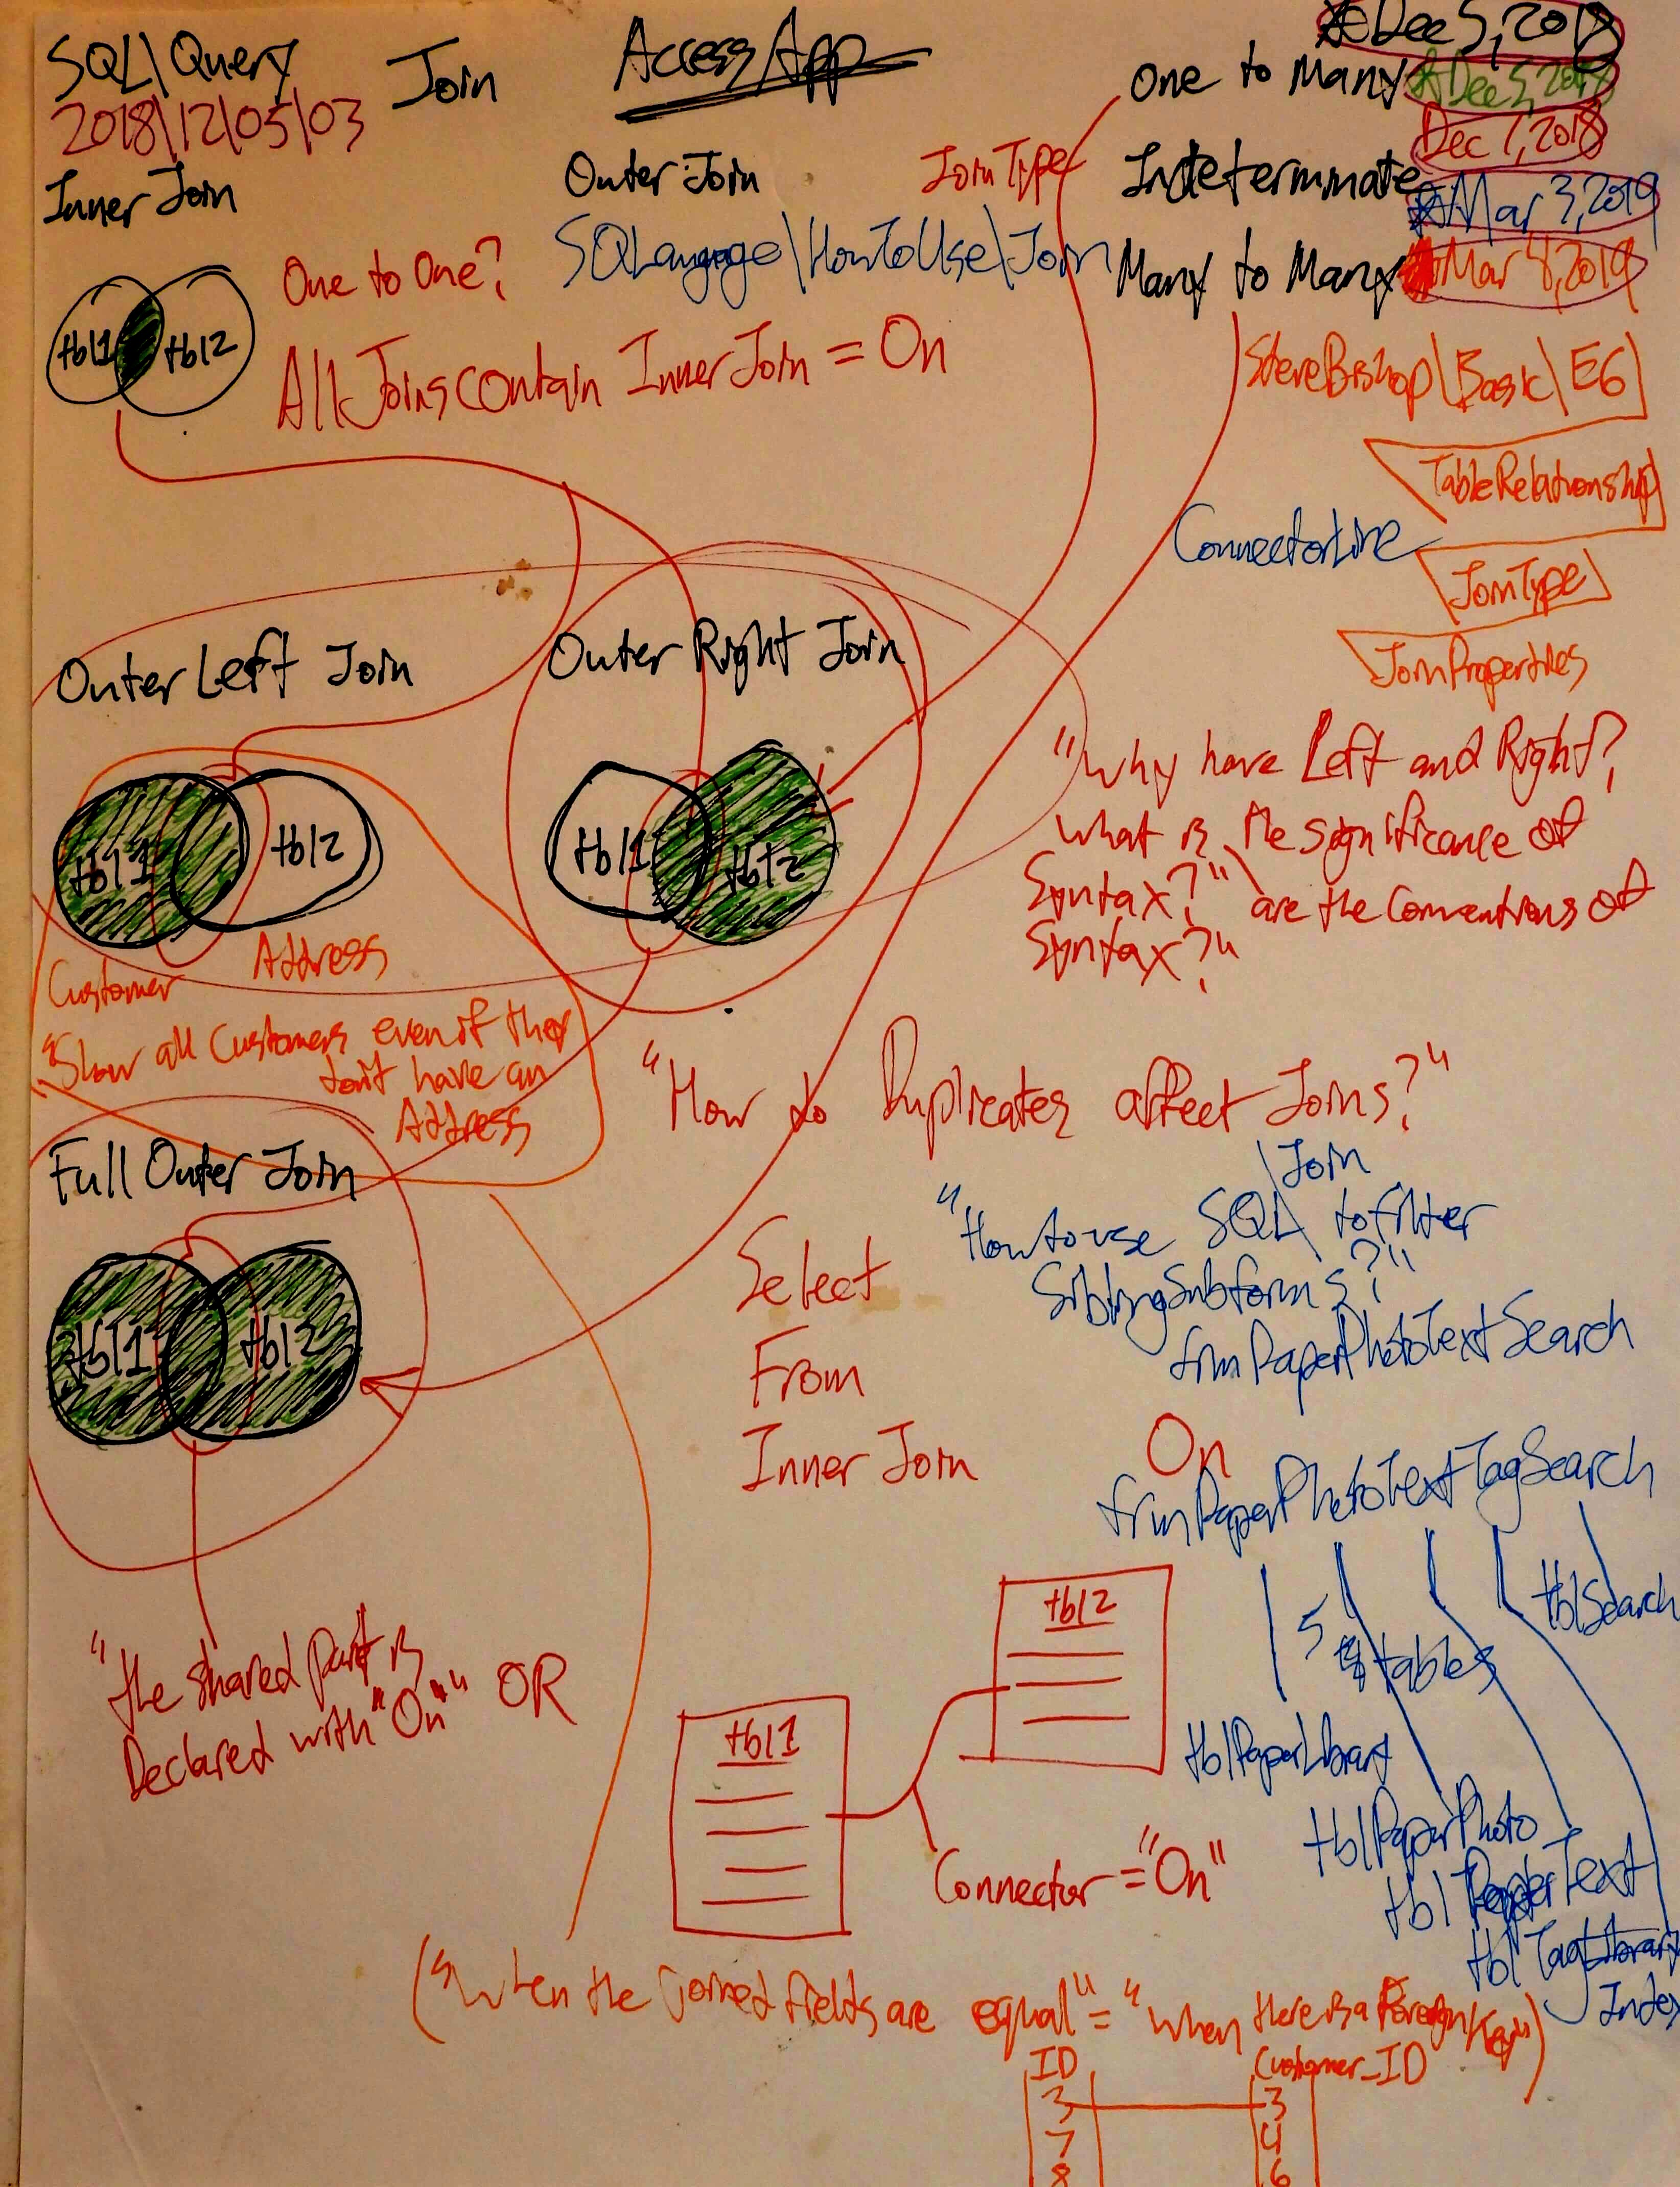 SQL\Query
2018\12\05\03
Join
Access App
One to Many
Dec 5, 2018
Dec 5, 2018
Dec 7, 2018
Mar 3, 2019
Mar 4, 2019
Inner Join
Outer Join
Join Type
Indeterminate
SQLangage\HowToUse\Join
Many to Many
One to One?
All Joins contain Inner Join = On
tbl1
tbl2
SteveBishop\Basic\E6
TableRelationship
ConnectorLine
JoinType
JoinProperties
Outer Left Join
Outer Right Join
tbl1
tbl2
tbl1
tbl2
"Why have Left and Right?
What is the significance of
Syntax?" \ are the Conventions of
Syntax?"
Customer
Address
"Show all Customers even if they
don't have an
Address
"How do Duplicates affect Joins?"
Full Outer Join
tbl1
tbl2
\Join
"How to use SQL to filter
Sibling Subforms?"
frmPaperPhotoTextSearch
Select
From
Inner Join
On
frmPaperPhotoTextTagSearch
5
tables
tblSearch
tblPaperLibrary
tblPaperPhoto
tblPaperText
tblTag
Index
"the shared part is
Declared with "On"" OR
tbl1
tbl2
Connector = "On"
("When the joined fields are equal" = "When there is a Foreign Key")
ID
Customer_ID
3 3
7 4
8 6